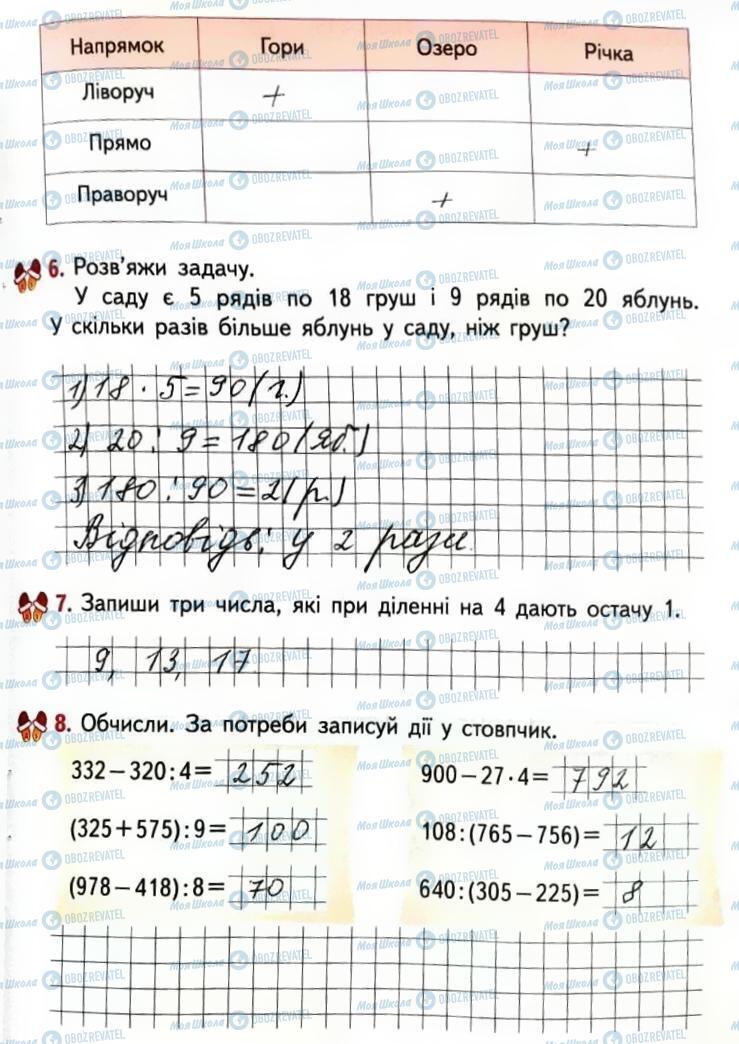 Напрямок Гори Озеро Річка
Ліворуч +
Прямо +
Праворуч +
6. Розв'яжи задачу.
У саду є 5 рядів по 18 груш і 9 рядів по 20 яблунь.
У скільки разів більше яблунь у саду, ніж груш?
1) 18 · 5 = 90 (г.)
2) 20 : 9 = 180 (яб.)
3) 180 : 90 = 2 (р.)
Відповідь: у 2 рази.
7. Запиши три числа, які при діленні на 4 дають остачу 1.
9, 13, 17
8. Обчисли. За потреби записуй дії у стовпчик.
332 – 320 : 4 = 252 900 – 27 · 4 = 792
(325 + 575) : 9 = 100 108 : (765 – 756) = 12
(978 – 418) : 8 = 70 640 : (305 – 225) = 8
Моя Школа OBOZREVATEL